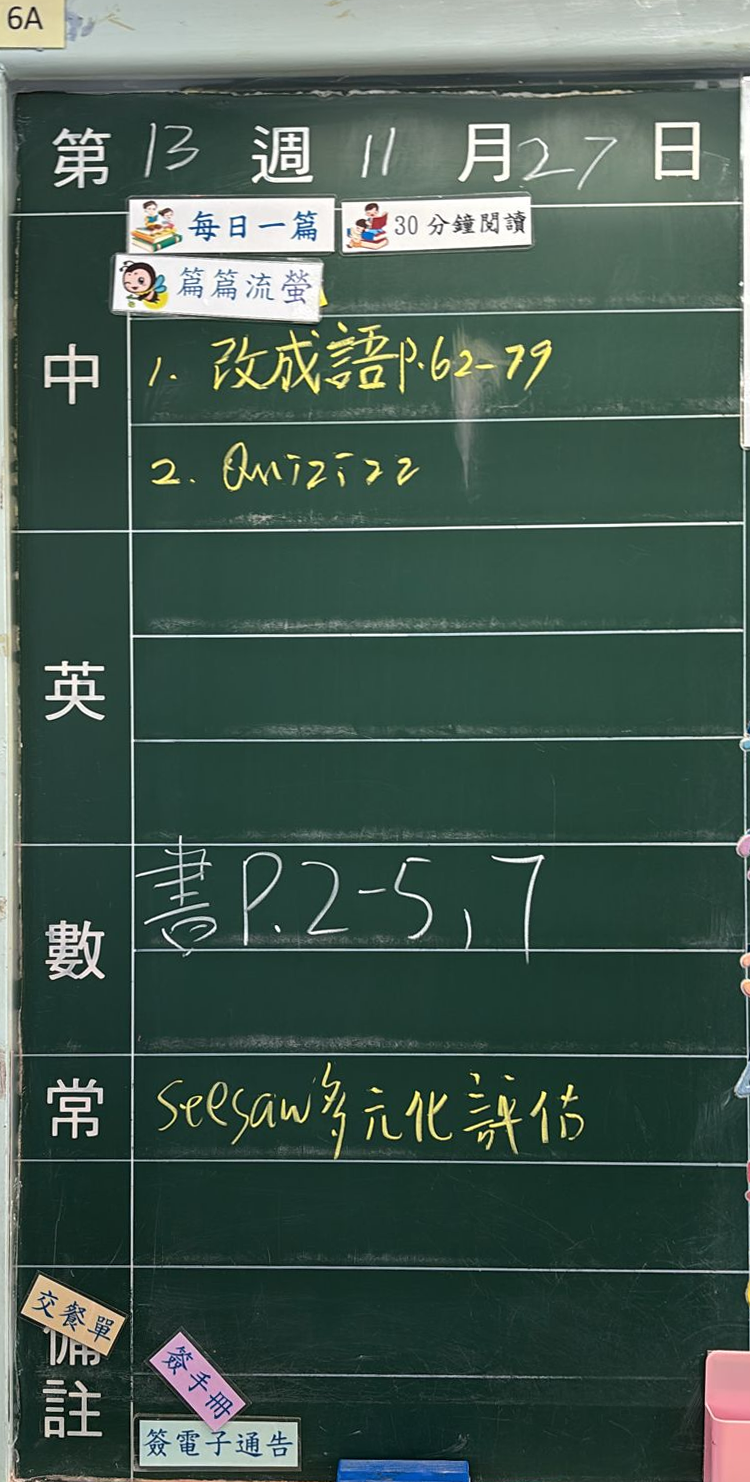 6A
第 13 週 11 月 27 日
每日一篇 30分鐘閱讀
篇篇流螢
中
1. 改成語 P.62-79
2. Quizizz
英
數
書 P.2-5,7
常
seesaw 多元化評估
交餐單
備註
簽手冊
簽電子通告